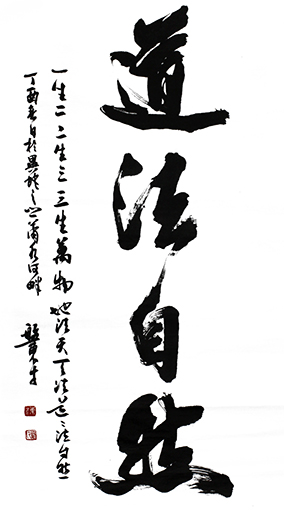 道法自然
一生二二生三三生萬物地法天天法道道法自然
丁酉春日於